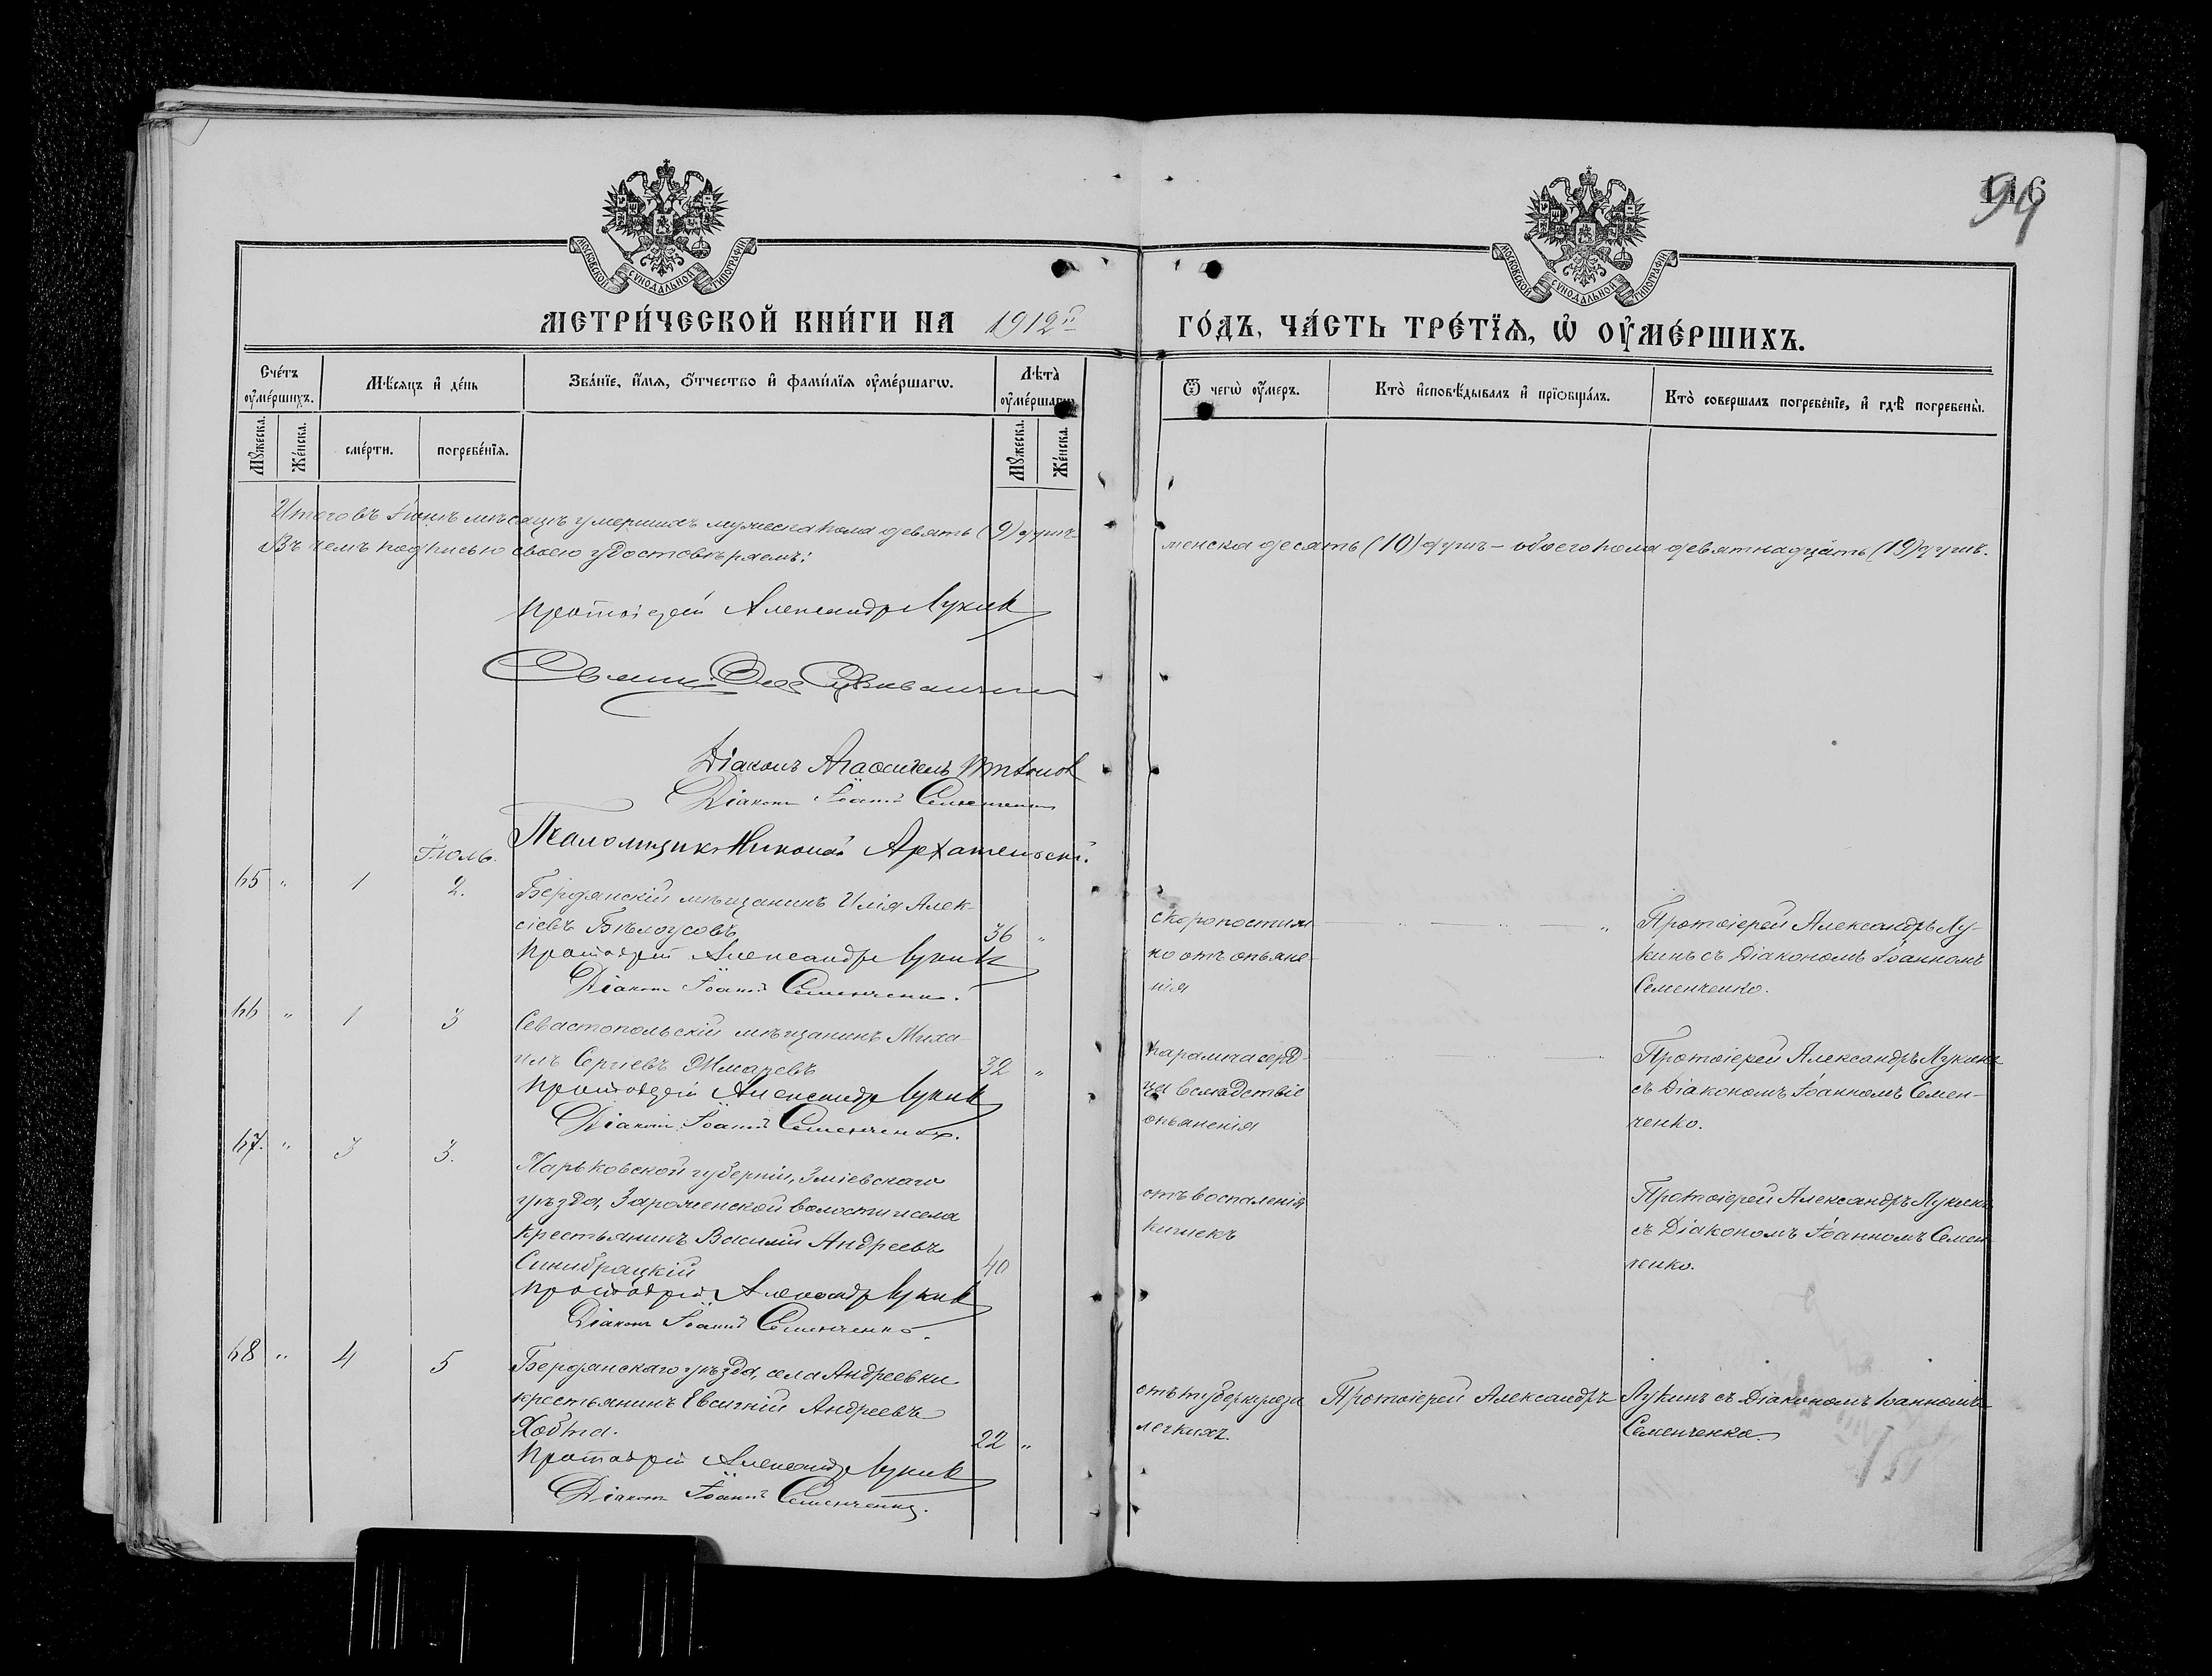 МОСКОВСКОЙ СѴНОДАЛЬНОЙ ТИПОГРАФІИ
МОСКОВСКОЙ СѴНОДАЛЬНОЙ ТИПОГРАФІИ
116
94
МЕТРИ́ЧЕСКОЙ КНИ́ГИ НА 1912й ГО́ДЪ, ЧА́СТЬ ТРЕ́ТЇѦ, Ѡ҆ ОУ҆МЕ́РШИХЪ.
Сче́тъ оу҆ме́ршихъ.
Мѣ́сѧцъ и҆ де́нь
Зва́нїе, и҆́мѧ, ѻ҆́тчество и҆ фами́лїѧ оу҆ме́ршагѡ.
Лѣта̀ оу҆ме́ршагѡ.
Ѿ чегѡ̀ оу҆́меръ.
Кто̀ и҆сповѣ́дывалъ и҆ прїѻбща́лъ.
Кто̀ соверша́лъ погребе́нїе, и҆ гдѣ̀ погребены̀.
Мꙋ́жеска.
Же́нска.
сме́рти.
погребе́нїѧ.
Мꙋ́жеска.
Же́нска.
Итого въ Іюнѣ мѣсяцѣ умершихъ мужеска пола девять (9) душъ женска десять (10) душъ – обоего пола девятнадцать (19) душъ.
Въ чемъ подписью своею удостовѣряемъ:
Протоіерей Александръ Лукинъ
Діаконъ
Діаконъ Іоаннъ Семенченко
Псаломщикъ Николай Архангельскій.
Іюль.
65 „ 1 2.
Бердянскій мѣщанинъ Илія Алек-
сіевъ Бѣлоусовъ 36 „
Протоіерей Александръ Лукинъ
Діаконъ Іоаннъ Семенченко.
скоропостиж
но отъ опьяне-
нія
Протоіерей Александръ Лу-
кинъ съ Діакономъ Іоанномъ
Семенченко.
66 „ 1 3
Севастопольскій мѣщанинъ Миха-
илъ Сергіевъ 32 „
Протоіерей Александръ Лукинъ
Діаконъ Іоаннъ Семенченко.
паралича серд-
ца вслѣдствіе
опьяненія
Протоіерей Александръ Лукинъ
съ Діакономъ Іоанномъ Семен-
ченко.
67. „ 3 3.
Харьковской губерніи, Зміевскаго
уѣзда, волости и села
крестьянинъ Василій Андреевъ
Синибрацкій 40
Протоіерей Александръ Лукинъ
Діаконъ Іоаннъ Семенченко.
отъ воспаленія
кишекъ
Протоіерей Александръ Лукинъ
съ Діакономъ Іоанномъ Семен
ченко.
68 „ 4 5
Бердянскаго уѣзда, села Андреевки
крестьянинъ Евсигній Андреевъ
22 „
Протоіерей Александръ Лукинъ
Діаконъ Іоаннъ Семенченко.
отъ туберкулеза
легкихъ.
Протоіерей Александръ Лукинъ съ Діакономъ Іоанномъ
Семенченко.